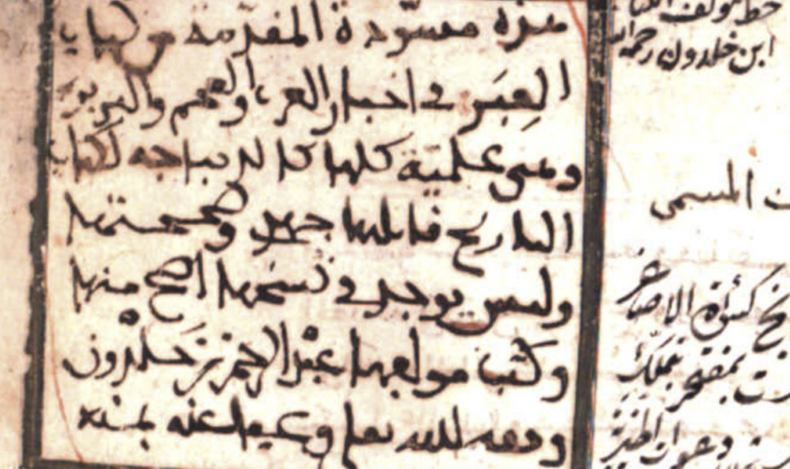 هذه مسودة المقدمة من كتاب
العبر في اخبار العرب والعجم والبربر
وهي علمية كلها كالديباجة لكتاب
التاريخ قابلتها جهدي وصححتها
وليس يوجد في نسخها اصح منها
وكتب مولفها عبد الرحمن بن خلدون
وفقه الله تعلى وعفا عنه بمنه
خط مولف
ابن خلدون رحمه الله
المسمى